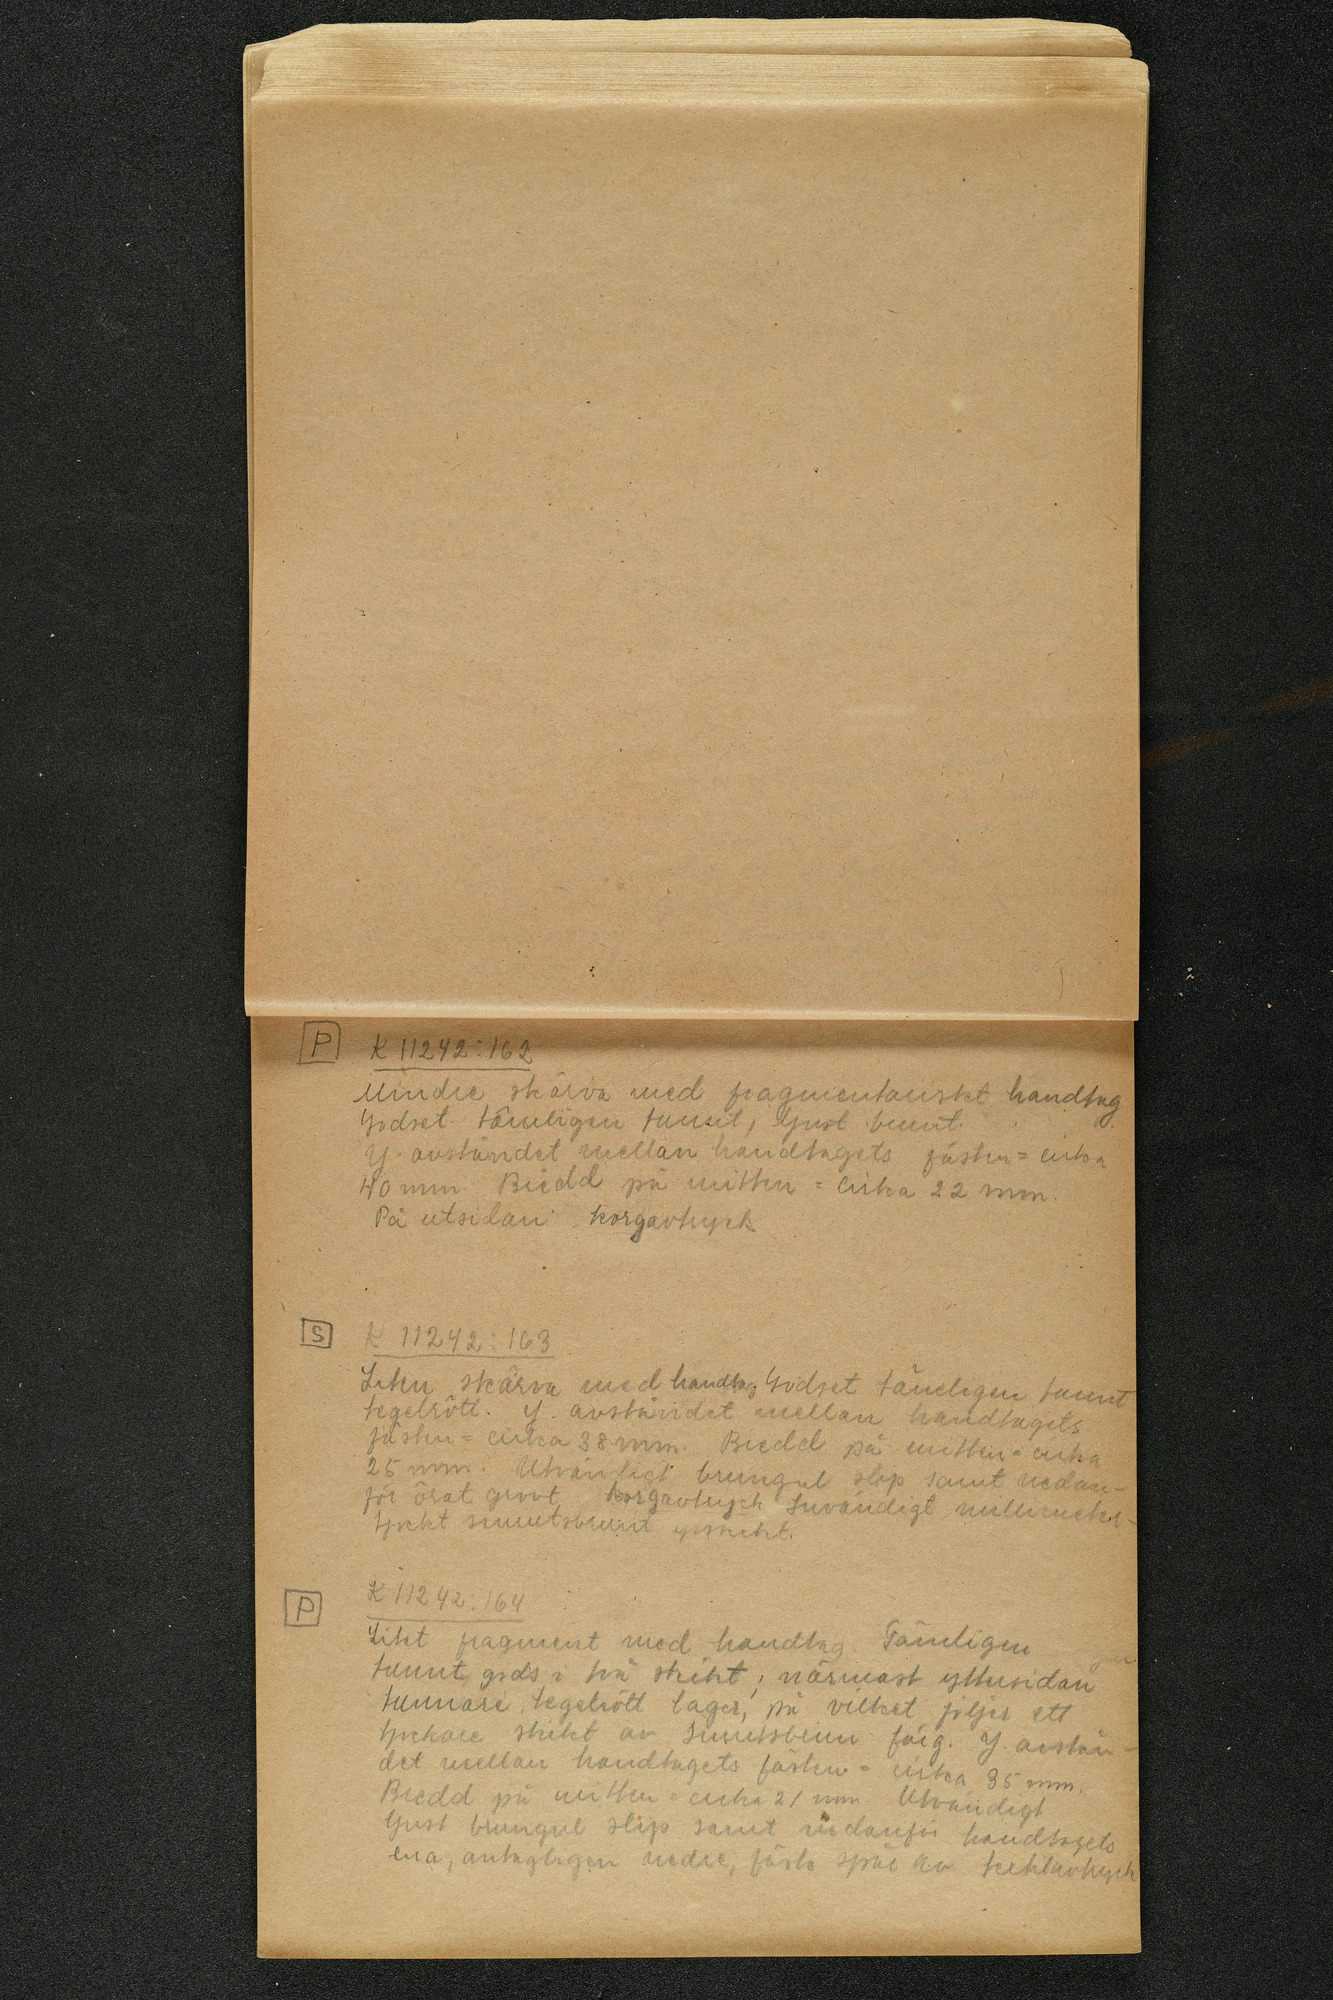 P K 11242:162
Mindre skärva med fragmentariskt handtag
Godset tämligen tunnt, ljust brunt.
Y. avståndet mellan handtagets fästen = cirka
40 mm Bredd på mitten = cirka 22 mm.
På utsidan korgavtryck
S K 11242:163
Liten skärva med handtag. Godset tämligen tunnt
tegelrött. Y. avståndet mellan handtagets
fästen = cirka 38 mm. Bredd på mitten = cirka
25 mm. Utvändigt brungul slip samt nedan-
för örat grovt korgavtryck Invändigt millimeter-
tjockt smutsbrunt ytskikt.
P K 11242:164
Litet fragment med handtag. Tämligen
tunnt gods i två skikt; närmast yttersidan
tunnare, tegelrött lager, på vilket följer ett
tjockare skikt av smutsbrun färg. Y. avstån-
det mellan handtagets fästen = cirka 35 mm.
Bredd på mitten = cirka 21 mm Utvändigt
ljust brungul slip samt nedanför handtagets
ena, antagligen nedre, fäste spår av textilavtryck